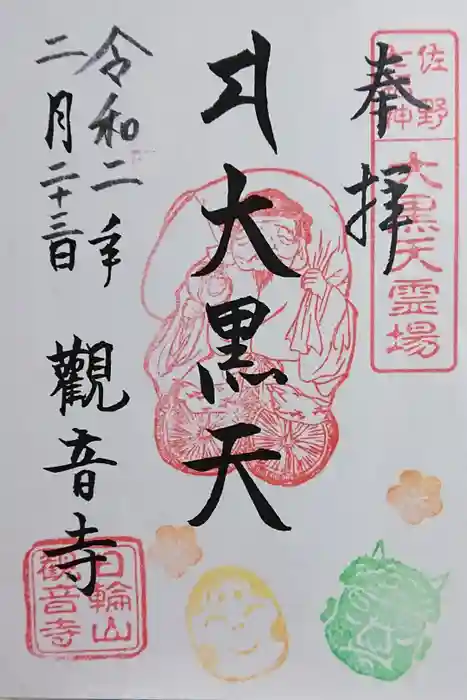 奉拝
佐野
七福神
大黒天霊場
大黒天
令和二年
二月二十三日
觀音寺
日輪山
觀音寺